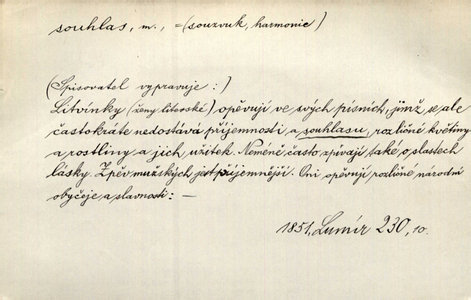 souhlas, m., =(souzvuk, harmonie)
(Spisovatel vypravuje:)
Litvínky (ženy litevské) opěvují ve svých písních, jimž se ale
častokráte nedostává příjemnosti a souhlasu, rozličné květiny
a rostliny a jich užitek. Neméně často zpívají také o slastech
lásky. Zpěv mužských jest příjemnější. Oni opěvují rozličné národní
obyčeje a slavnosti: —
1851, Lumír 230, 10.